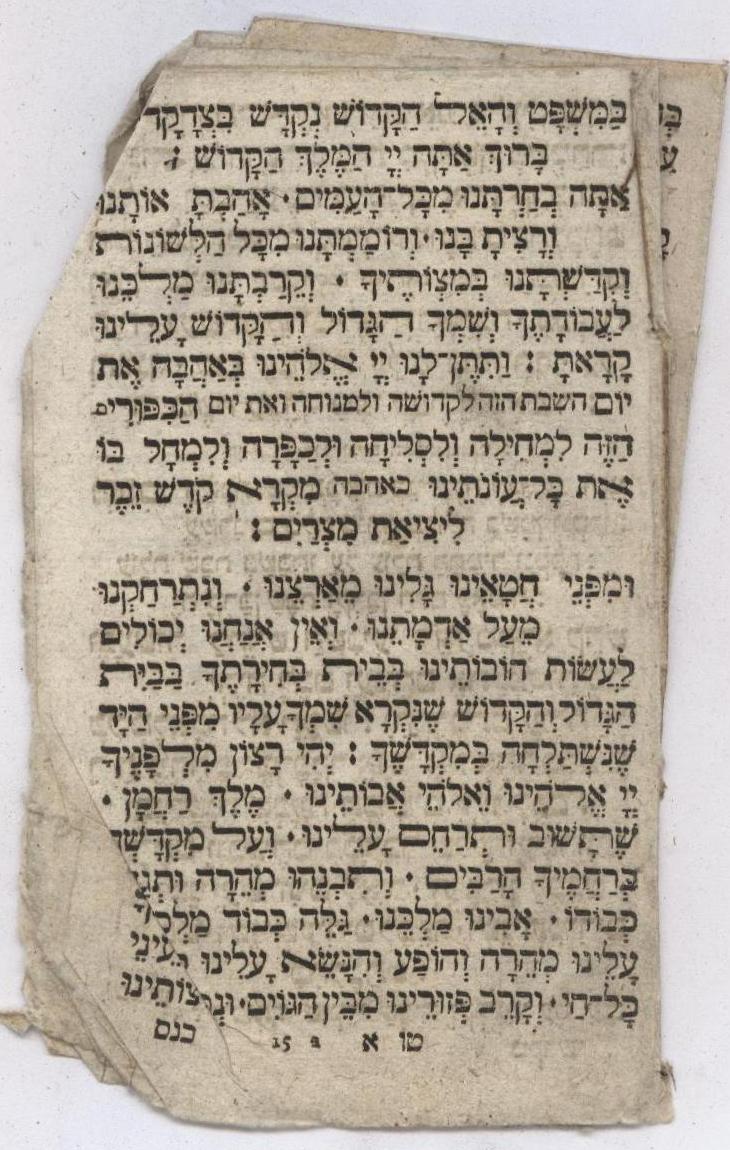 בַּמִּשְׁפָּט וְהָאֵל הַקָּדוֹשׁ נִקְדַּשׁ בִּצְדָקָה
בָּרוּךְ אַתָּה יְיָ הַמֶּלֶךְ הַקָּדוֹשׁ :
אַתָּה בְחַרְתָּנוּ מִכָּל־הָעַמִּים · אָהַבְתָּ אוֹתָנוּ
וְרָצִיתָ בָּנוּ · וְרוֹמַמְתָּנוּ מִכָּל הַלְּשׁוֹנוֹת
וְקִדַּשְׁתָּנוּ בְּמִצְוֹתֶיךָ · וְקֵרַבְתָּנוּ מַלְכֵּנוּ
לַעֲבוֹדָתֶךָ וְשִׁמְךָ הַגָּדוֹל וְהַקָּדוֹשׁ עָלֵינוּ
קָרָאתָ : וַתִּתֶּן־לָנוּ יְיָ אֱלֹהֵינוּ בְּאַהֲבָה אֶת
יום השבת הזה לקדושה ולמנוחה ואת יום הַכִּפּוּרִים
הַזֶּה לִמְחִילָה וְלִסְלִיחָה וּלְכַפָּרָה וְלִמְחָל בּוֹ
אֶת כָּל־עֲוֹנֹתֵינוּ באהבה מִקְרָא קֹדֶשׁ זֵכֶר
לִיצִיאַת מִצְרַיִם :
וּמִפְּנֵי חֲטָאֵינוּ גָּלִינוּ מֵאַרְצֵנוּ · וְנִתְרַחַקְנוּ
מֵעַל אַדְמָתֵנוּ · וְאֵין אֲנַחְנוּ יְכוֹלִים
לַעֲשׂוֹת חוֹבוֹתֵינוּ בְּבֵית בְּחִירָתֶךָ בַּבַּיִת
הַגָּדוֹל וְהַקָּדוֹשׁ שֶׁנִּקְרָא שִׁמְךָ עָלָיו מִפְּנֵי הַיָּד
שֶׁנִּשְׁתַּלְּחָה בְּמִקְדָּשֶׁךָ : יְהִי רָצוֹן מִלְּפָנֶיךָ
יְיָ אֱלֹהֵינוּ וֵאלֹהֵי אֲבוֹתֵינוּ · מֶלֶךְ רַחֲמָן ·
שֶׁתָּשׁוּב וּתְרַחֵם עָלֵינוּ · וְעַל מִקְדָּשְׁךָ
בְּרַחֲמֶיךָ הָרַבִּים · וְתִבְנֵהוּ מְהֵרָה
כְּבוֹדוֹ · אָבִינוּ מַלְכֵּנוּ · גַּלֵּה כְּבוֹד
עָלֵינוּ מְהֵרָה וְהוֹפַע וְהִנָּשֵׂא עָלֵינוּ לְעֵינֵי
כָּל־חַי · וְקָרֵב פְּזוּרֵינוּ מִבֵּין הַגּוֹיִם ·
טו א 2 15 כנס